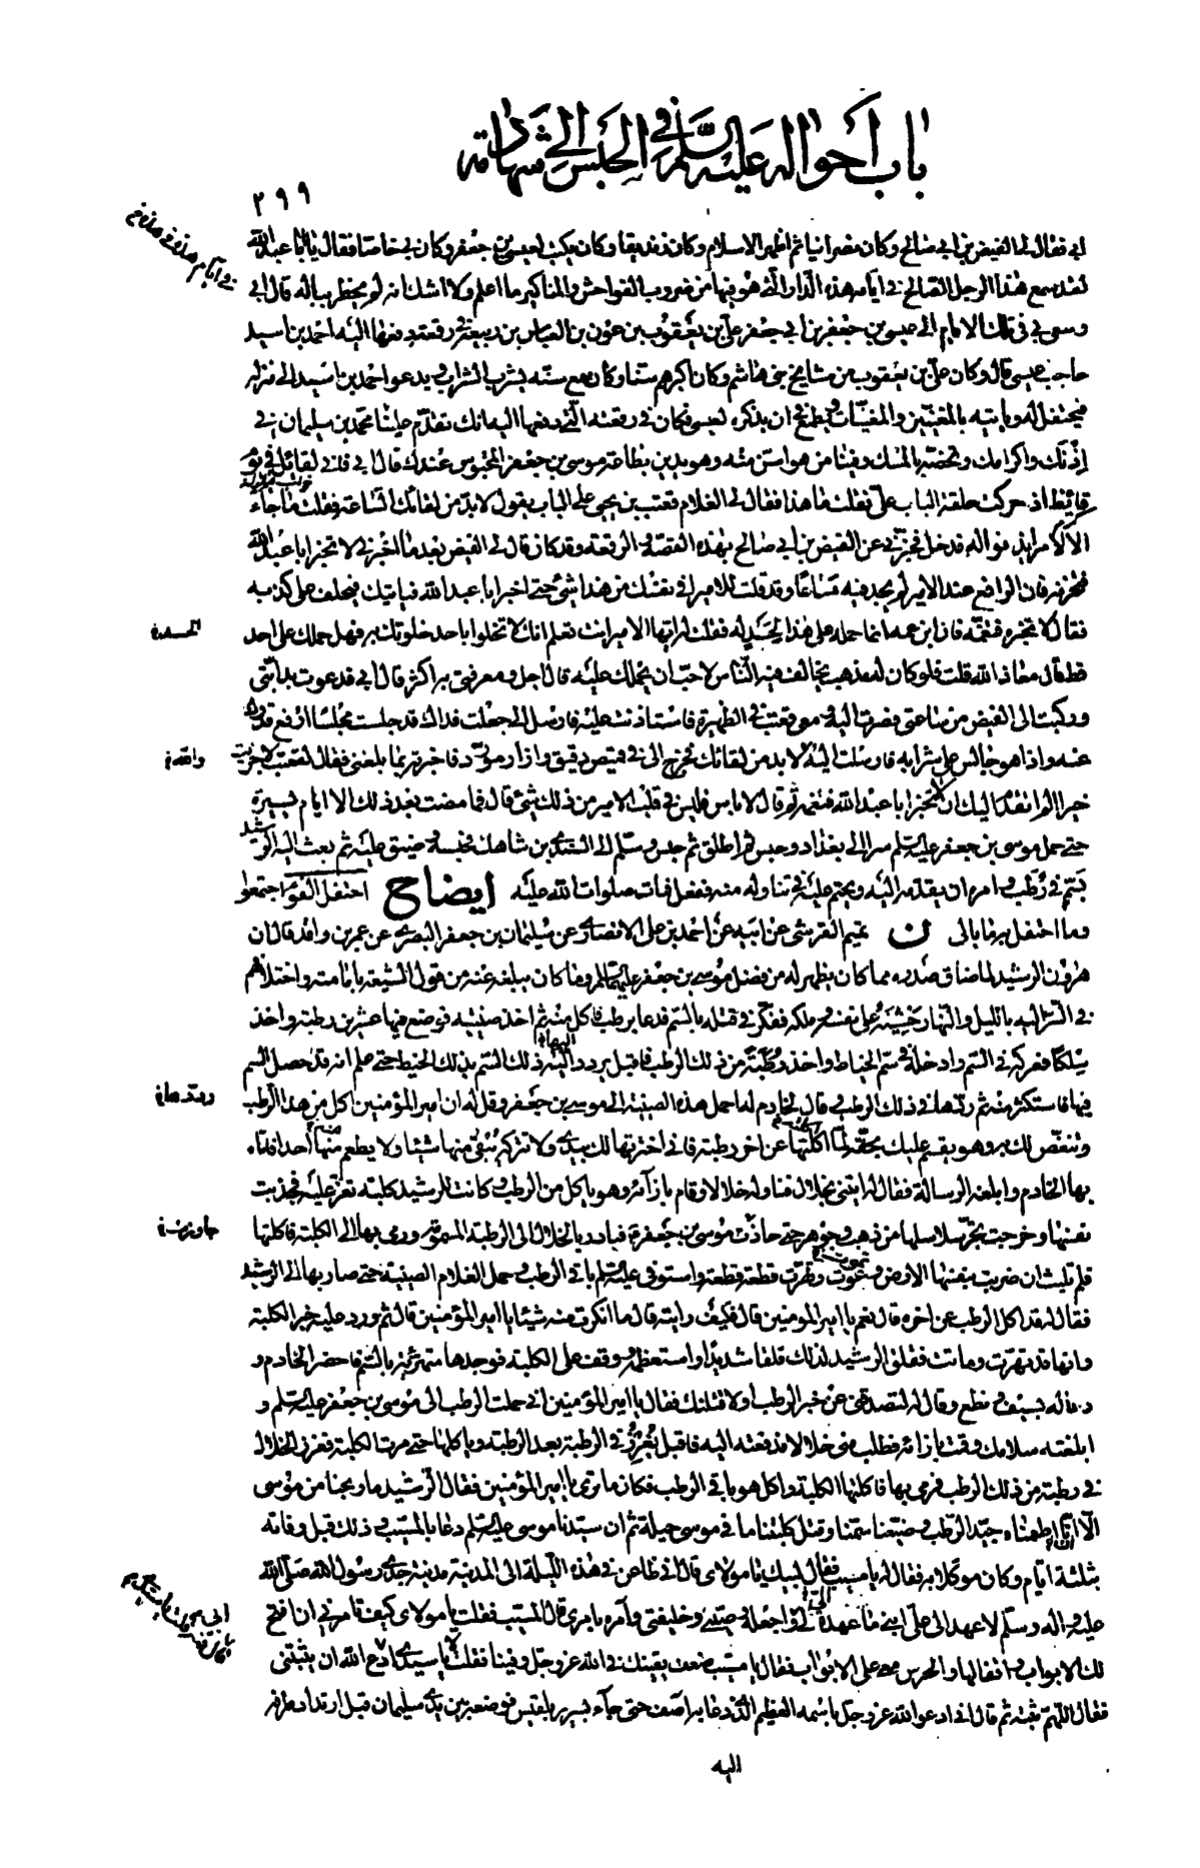 باب أحواله عليه السلم في الحبس إلى شهادته
٢٩٩
في أيام هذه في هذه خ
ابي فقال لي الفيض بن ابي صالح وكان نصرانيا ثم اظهر الاسلام وكان زنديقا وكان يكتب لعيسى بن جعفر وكان بي خاصا فقال يا ابا عبد الله
لقد سمع هذا الرجل الصالح في ايامه هذه الدار التي هو فيها من ضروب الفواحش والمناكير ما اعلم ولا اشك انه لم يخطر بباله قال ابي
وسعى بي في تلك الايام الى عيسى بن جعفر بن ابي جعفر علي بن يعقوب بن عون بن العباس بن ربيعة في رقعة دفعها اليه احمد بن اسيد
حاجب عيسى قال وكان علي بن يعقوب من مشايخ بني هاشم وكان اكبرهم سنا وكان مع سنه يشرب الشراب ويدعو احمد بن اسيد الى منزله
فيحتفل له ويأتيه بالمغنين والمغنيات ويطمع في ان يذكره لعيسى فكان في رقعته التي دفعها اليه انك تقدم علينا محمد بن سليمان في
اذنك واكرامك وتخصه بالمسك وفينا من هو اسن منه وهو يدين بطاعة موسى بن جعفر المحبوس عندك قال ابي فاني لقائل في يوم
قائظ اذ حركت حلقة الباب علي فقلت ما هذا فقال لي الغلام قعنب بن يحيى على الباب يقول لا بد من لقائك الساعة فقلت ما جاء
الا لامر ايذنوا له فدخل فخبرني عن الفيض بن ابي صالح بهذه القصة والرقعة وقد كان قال لي الفيض بعد ما اخبرني لا تخبر ابا عبد الله
فتحزنه فان الرافع عند الامير لم يجد فيه مساغا وقد قلت للامير افي نفسك من هذا شيء حتى اخبر ابا عبد الله فيأتيك فيحلف على كذبه
فقال لا تخبره فتغمه فان ابن عمه انما حمله على هذا لحسد له فقلت له ايها الامير انت تعلم انك لا تخلو باحد خلوتك به فهل حملك على احد
قط قال معاذ الله قلت فلو كان له مذهب يخالف فيه الناس لاحب ان يحملك عليه قال اجل ومعرفتي به اكثر قال ابي فدعوت بدابتي
وركبت الى الفيض من ساعتي فصرت اليه ومعي قعنب في الظهيرة فاستاذنت عليه فارسل الي جعلت فداك قد جلست مجلسا ارفع قدرك
عنه واذا هو جالس على شرابه فارسلت اليه لا بد من لقائك فخرج الي في قميص دقيق وازار مورد فاخبرته بما بلغني فقال لقعنب لا جزيت
خيرا الم اتقدم اليك ان لا تخبر ابا عبد الله فتغمه ثم قال لا بأس فليس في قلب الامير من ذلك شيء قال فما مضت بعد ذلك الا ايام يسيرة
حتى حمل موسى بن جعفر عليه السلم سرا الى بغداد وحبس ثم اطلق ثم حبس وسلم الى السندي بن شاهك فحبسه وضيق عليه ثم بعث اليه الرشيد
بسم في رطب وامره ان يقدمه اليه ويحتم عليه في تناوله منه ففعل فمات صلوات الله عليه ايضاح احتفل القوم اجتمعوا
وما احتفل به ما بالى ن تميم القرشي عن ابيه عن احمد بن علي الانصاري عن سليمان بن جعفر البصري عن عمر بن واقد قال ان
هرون الرشيد لما ضاق صدره مما كان يظهر له من فضل موسى بن جعفر عليهما السلم وما كان يبلغه عنه من قول الشيعة بامامته واختلافهم
في السر اليه بالليل والنهار خشيه على نفسه وملكه ففكر في قتله بالسم فدعا برطب فاكل منه ثم اخذ صينية فوضع فيها عشرين رطبة واخذ
سلكا فعركه في السم وادخله في سم الخياط واخذ رطبة من ذلك الرطب فاقبل يردد اليها ذلك السم بذلك الخيط حتى علم انه قد حصل السم
فيها فاستكثر منه ثم ردها في ذلك الرطب وقال لخادم له احمل هذه الصينية الى موسى بن جعفر وقل له ان امير المؤمنين اكل من هذا الرطب
وتنغص لك به وهو يقسم عليك بحقه لما اكلتها عن اخر رطبة فاني اخترتها لك بيدي ولا تتركه يبقى منها شيئا ولا يطعم منها احدا فاتاه
بها الخادم وابلغه الرسالة فقال له ايتني بخلال فناوله خلالا وقام بازائه وهو يأكل من الرطب وكانت للرشيد كلبة تعز عليه فجذبت
نفسها وخرجت تجر سلاسلها من ذهب وجوهر حتى حاذت موسى بن جعفر فبادر بالخلال الى الرطبة المسمومة ورمى بها الى الكلبة فاكلتها
فلم تلبث ان ضربت بنفسها الارض وعوت وتهرت قطعة قطعة واستوفى عليه السلم باقي الرطب وحمل الغلام الصينية حتى صار بها الى الرشيد
فقال له قد اكل الرطب عن اخره قال نعم يا امير المومنين قال فكيف رايته قال ما انكرت منه شيئا يا امير المؤمنين قال ثم ورد عليه خبر الكلبة
وانها قد تهرت وماتت فقلق الرشيد لذلك قلقا شديدا واستعظمه ووقف على الكلبة فوجدها متهرئة بالسم فاحضر الخادم و
دعا له بسيف ونطع وقال له لتصدقني عن خبر الرطب او لاقتلنك فقال يا امير المؤمنين اني حملت الرطب الى موسى بن جعفر عليه السلم و
ابلغته سلامك وقمت بازائه فطلب مني خلالا فدفعته اليه فاقبل يغرز في الرطبة بعد الرطبة ويأكلها حتى مرت الكلبة فغرز الخلال
في رطبة من ذلك الرطب فرمى بها فاكلتها الكلبة واكل هو باقي الرطب فكان ما ترى يا امير المؤمنين فقال الرشيد ما ربحنا من موسى
الا انا اطعمناه جيد الرطب وضيعنا سمنا وقتل كلبتنا ما في موسى حيلة ثم ان سيدنا موسى عليه السلم دعا بالمسيب وذلك قبل وفاته
بثلثة ايام وكان موكلا به فقال له يا مسيب فقال لبيك يا مولاي قال اني ظاعن في هذه الليلة الى المدينة مدينة جدي رسول الله صلى الله
عليه واله وسلم لاعهد الى علي ابني ما عهده الي ابي واجعله وصيي وخليفتي وآمره بامري قال المسيب فقلت يا مولاي كيف تامرني ان افتح
لك الابواب واقفالها والحرس معي على الابواب فقال يا مسيب ضعف يقينك في الله عز وجل وفينا فقلت لا يا سيدي ادع الله ان يثبتني
فقال اللهم ثبته ثم قال اني ادعو الله عز وجل باسمه العظيم الذي دعا به آصف حتى جاء بسرير بلقيس فوضعه بين يدي سليمان قبل ارتداد طرفه
اليه